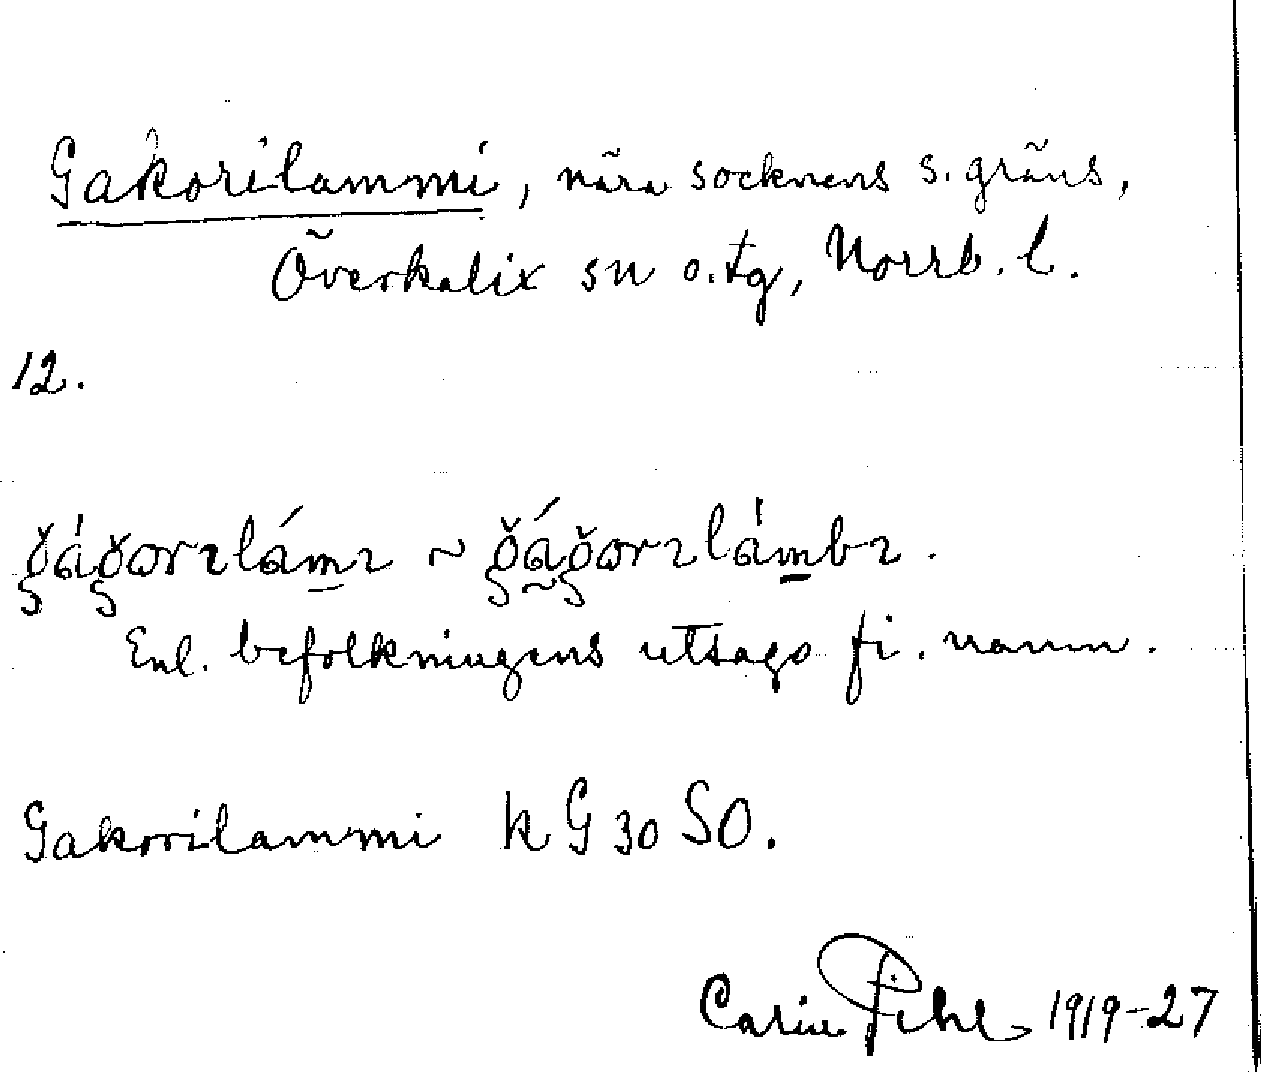 Gakorilammi, nära socknens s. gräns,
Överkalix sn o. tg, Norrb. l.
12.
~
Enl. befolkningens utsago fi. namn.
Gakorilammi k G 30 SO.
Carin Pihl 1919-27